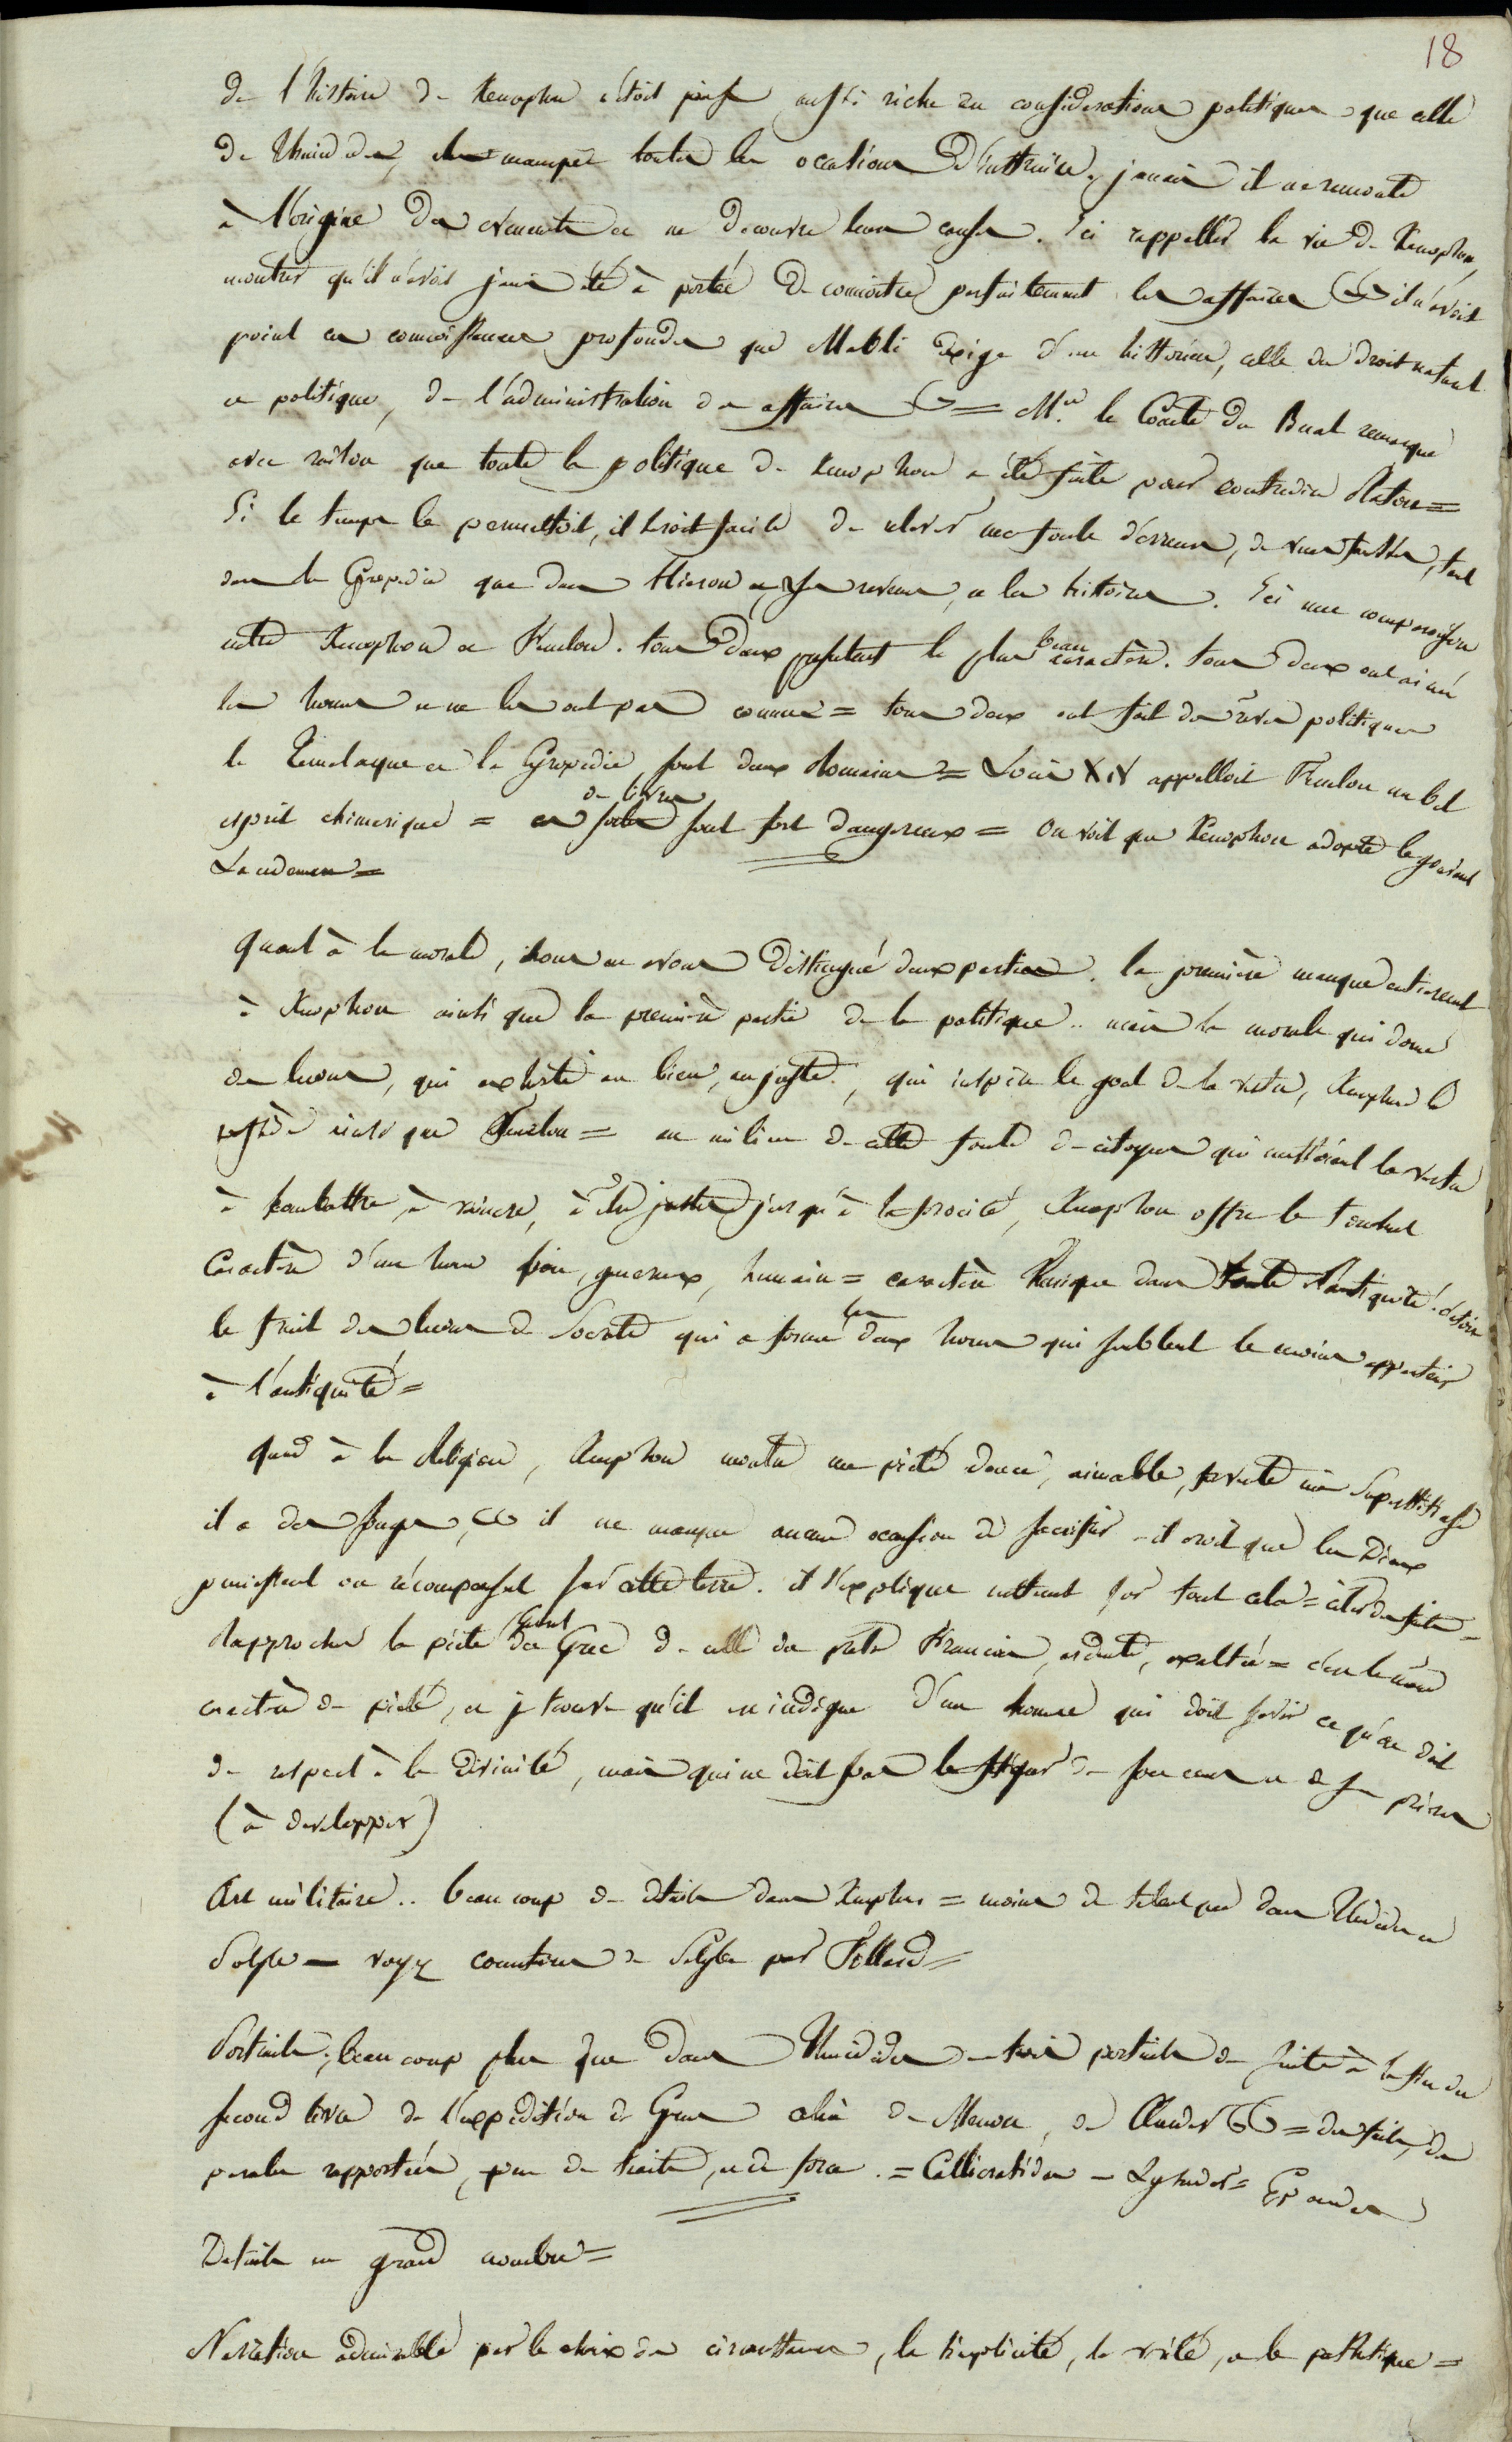 18
de l'histoire de Xenophon étoit presque aussi riche en considerations politiques que celle
de Thucidides, manquer toutes les occasions d'instruire. jamais il ne remonte
à l'origine des evenements et ne decouvre leurs causes. Ici rappeller la vie de Xenophon,
montrer qu'il n'avoit jamais été à portée de connoitre parfaitement les affaires & il n'avoit
point ces connoissances profondes que Mabli exige d'un historien, celle du droit naturel
et politique, de l'administration des affaires & = Mr. le Comte du Buat remarque
avec raison que toute la politique de Xenophon a été faite pour contredire Platon =
Si le temps le permettoit, il seroit facile de relever une foule d'erreurs, de vues fausses, tant
dans la Cyropedie que dans Hieron et les revenus, et les histoires. Ici une comparaison
entre Xenophon et Fenelon. tous deux presentent le plus beau caractère. tous deux ont aimé
les hommes et ne les ont pas connus = tous deux ont fait des rêves politiques
le Telemaque et la Cyropedie sont deux Romans = Louis XIV appelloit Fenelon un bel
esprit chimerique = ces sortes de livres sont fort dangereux = On voit que Xenophon adopte le gouvernement
Lacedemon =
Quant à la morale, nous en avons distingué deux parties. la première manque entierement
à Xenophon ainsi que la premiere partie de la politique.. mais la morale qui donne
des leçons, qui exhorte au bien, au juste, qui inspire le gout de la vertu, Xenophon la
possède ainsi que Fenelon = au milieu de cette foule de citoyens qui mettoient la vertu
à combattre, à vaincre, à être justes jusqu'à la ferocité, Xenophon offre le touchant
Caractère d'un homme bon, genereux, humain = caractère unique dans toute l'antiquité. c'étoit
le fruit des leçons de Socrate qui a formé les deux hommes qui semblent le moins appartenir
à l'antiquité =
Quand à la Religion, Xenophon montre une piété douce, aimable, fervente même Superstitieuse
il a des songes, & il ne manque aucune occasion de sacrifier - il croit que les Dieux
punissent ou récompensent sur cette terre. il s'explique nettement sur tout cela = citer des faits =
Rapprocher la piété du Grec de celle du François, ardente, exaltée = c'est le même
caractère de piété, et je trouve qu'il est indigne d'un homme qui doit savoir ce qu'on doit
de respect à la divinité, mais qui ne doit pas la fatiguer de son encens et de ses prières
(à developper)
Art militaire.. beaucoup de details dans Xenophon = moins de talent que dans Thucidides et
Polybe - voyez commentaires de Polybe par Follard =
Portraits, beaucoup plus que dans Thucidides - trois portraits de suite à la fin du
second livre de l'expedition de Cyrus celui de Menon, de Cléarque & = des faits, des
paroles rapportées, peu de traits, et de force. = Callicratidas - Lysander =
Details en grand nombre =
Narration admirable par le choix des circonstances, la simplicité, la vérité, et le pathétique =